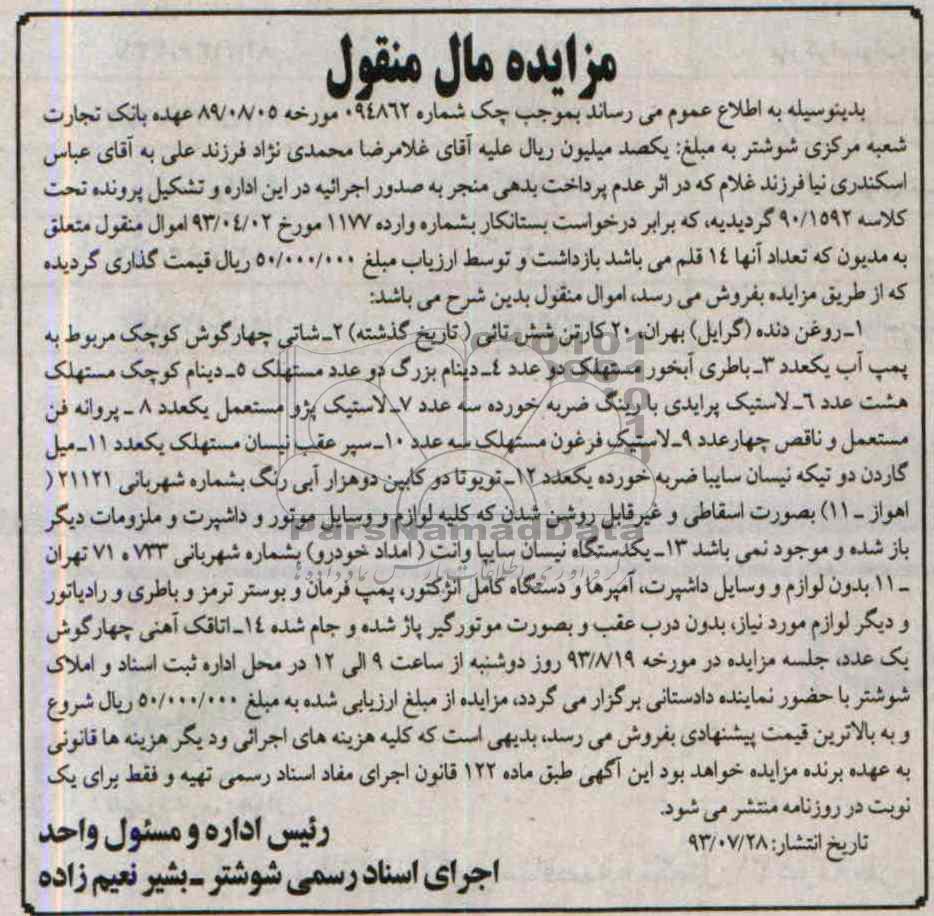 مزایده مال منقول
بدینوسیله به اطلاع عموم می رساند بموجب چک شماره ۰۹٤۸٦۲ مورخه ۸۹/۰۸/۰۵ عهده بانک تجارت
شعبه مرکزی شوشتر به مبلغ: یکصد میلیون ریال علیه آقای غلامرضا محمدی نژاد فرزند علی به آقای عباس
اسکندری نیا فرزند غلام که در اثر عدم پرداخت بدهی منجر به صدور اجرائیه در این اداره و تشکیل پرونده تحت
کلاسه ۹۰/۱۵۹۲ گردیدیه، که برابر درخواست بستانکار بشماره وارده ۱۱۷۷ مورخ ۹۳/۰٤/۰۲ اموال منقول متعلق
به مدیون که تعداد آنها ۱٤ قلم می باشد بازداشت و توسط ارزیاب مبلغ ۵۰/۰۰۰/۰۰۰ ریال قیمت گذاری گردیده
که از طریق مزایده بفروش می رسد، اموال منقول بدین شرح می باشد:
۱ـ روغن دنده (گرایل) بهران، ۲۰ کارتن شش تائی ( تاریخ گذشته) ۲ـ شاتی چهارگوش کوچک مربوط به
پمپ آب یکعدد ۳ـ باطری آبخور مستهلک دو عدد ٤ـ دینام بزرگ دو عدد مستهلک ۵ـ دینام کوچک مستهلک
هشت عدد ٦ـ لاستیک پرایدی با رینگ ضربه خورده سه عدد ۷ـ لاستیک پژو مستعمل یکعدد ۸ ـ پروانه فن
مستعمل و ناقص چهارعدد ۹ـ لاستیک فرغون مستهلک سه عدد ۱۰ـ سپر عقب نیسان مستهلک یکعدد ۱۱ـ میل
گاردن دو تیکه نیسان سایپا ضربه خورده یکعدد ۱۲ـ تویوتا دو کابین دوهزار آبی رنگ بشماره شهربانی ۲۱۱۲۱ (
اهواز ـ ۱۱) بصورت اسقاطی و غیرقابل روشن شدن که کلیه لوازم و وسایل موتور و داشپرت و ملزومات دیگر
باز شده و موجود نمی باشد ۱۳ـ یکدستگاه نیسان سایپا وانت ( امداد خودرو) بشماره شهربانی ۷۳۳ ه ۷۱ تهران
ـ ۱۱ بدون لوازم و وسایل داشپرت، آمپرها و دستگاه کامل انژکتور، پمپ فرمان و بوستر ترمز و باطری و رادیاتور
و دیگر لوازم مورد نیاز، بدون درب عقب و بصورت موتورگیر پاژ شده و جام شده ۱٤ـ اتاقک آهنی چهارگوش
یک عدد، جلسه مزایده در مورخه ۹۳/۸/۱۹ روز دوشنبه از ساعت ۹ الی ۱۲ در محل اداره ثبت اسناد و املاک
شوشتر با حضور نماینده دادستانی برگزار می گردد، مزایده از مبلغ ارزیابی شده به مبلغ ۵۰/۰۰۰/۰۰۰ ریال شروع
و به بالاترین قیمت پیشنهادی بفروش می رسد، بدیهی است که کلیه هزینه های اجرائی ودیگر هزینه ها قانونی
به عهده برنده مزایده خواهد بود این آگهی طبق ماده ۱۲۲ قانون اجرای مفاد اسناد رسمی تهیه و فقط برای یک
نوبت در روزنامه منتشر می شود.
تاریخ انتشار: ۹۳/۰۷/۲۸
رئیس اداره و مسئول واحد
اجرای اسناد رسمی شوشتر ـ بشیر نعیم زاده
ParsNamadData